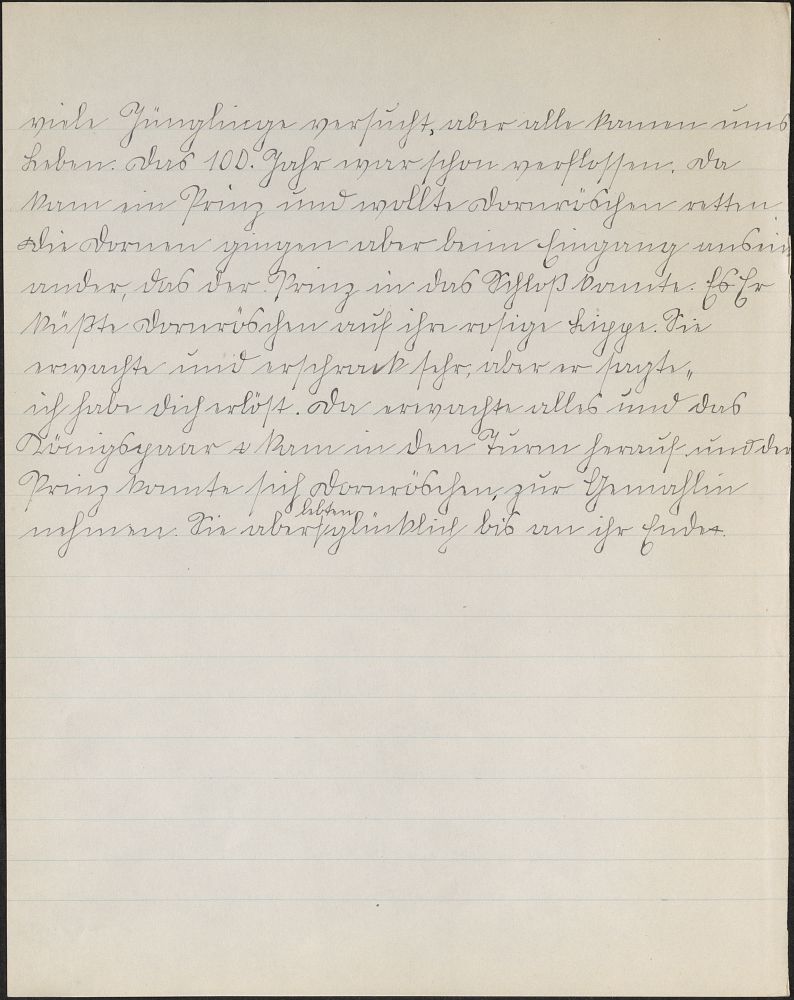 viele Jünglinge versucht, aber alle kamen ums
Leben. Das 100. Jahr war schon verflossen. Da
kam ein Prinz und wollte Dornröschen retten.
Die Dornen gingen aber beim Eingang ausein
ander, das der Prinz in das Schloß konnte. Es Er
küßte Dornröschen auf ihre rosige Lippe. Sie
erwachte und erschrack sehr, aber er sagte„
ich habe dich erlöst. Da erwachte alles und das
Königspaar kam in den Turm herauf und der
Prinz konnte sich Dornröschen, zur Gemahlin
nehmen. Sie aber lebten glücklich bis an ihr Ende.